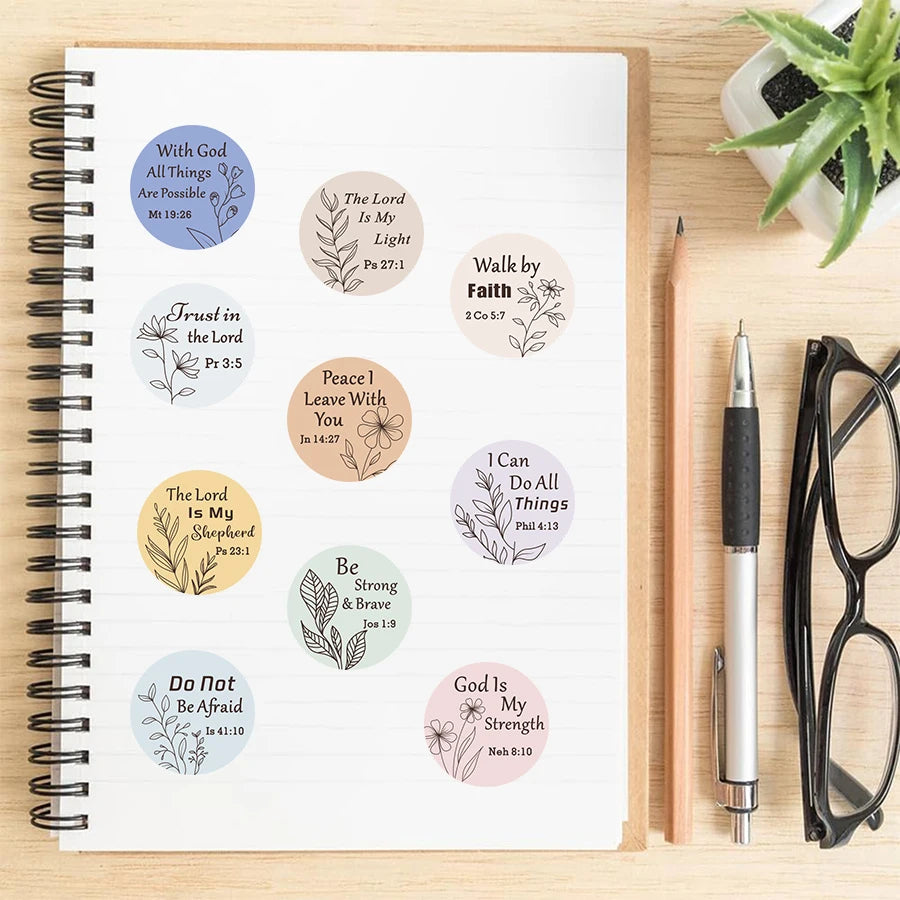 With God
All Things
Are Possible
Mt 19:26
The Lord
Is My
Light
Ps 27:1
Walk by
Faith
2 Co 5:7
Trust in
the Lord
Pr 3:5
Peace I
Leave With
You
Jn 14:27
I Can
Do All
Things
Phil 4:13
The Lord
Is My
Shepherd
Ps 23:1
Be
Strong
& Brave
Jos 1:9
Do Not
Be Afraid
Is 41:10
God Is
My
Strength
Neh 8:10